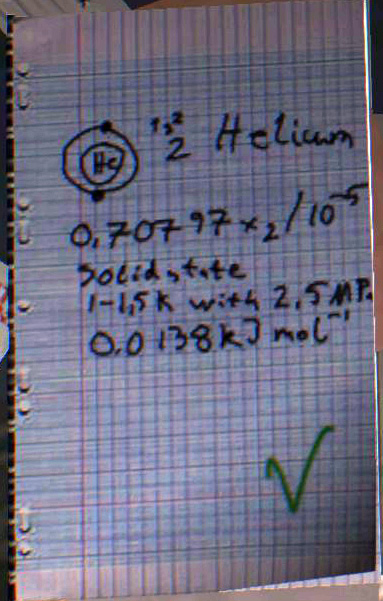 He
1s²
2 Helium
0,70797 x₂/10⁻⁵
Solid state
1-1,5K with 2,5 MPa
0.0138 kJ mol⁻¹